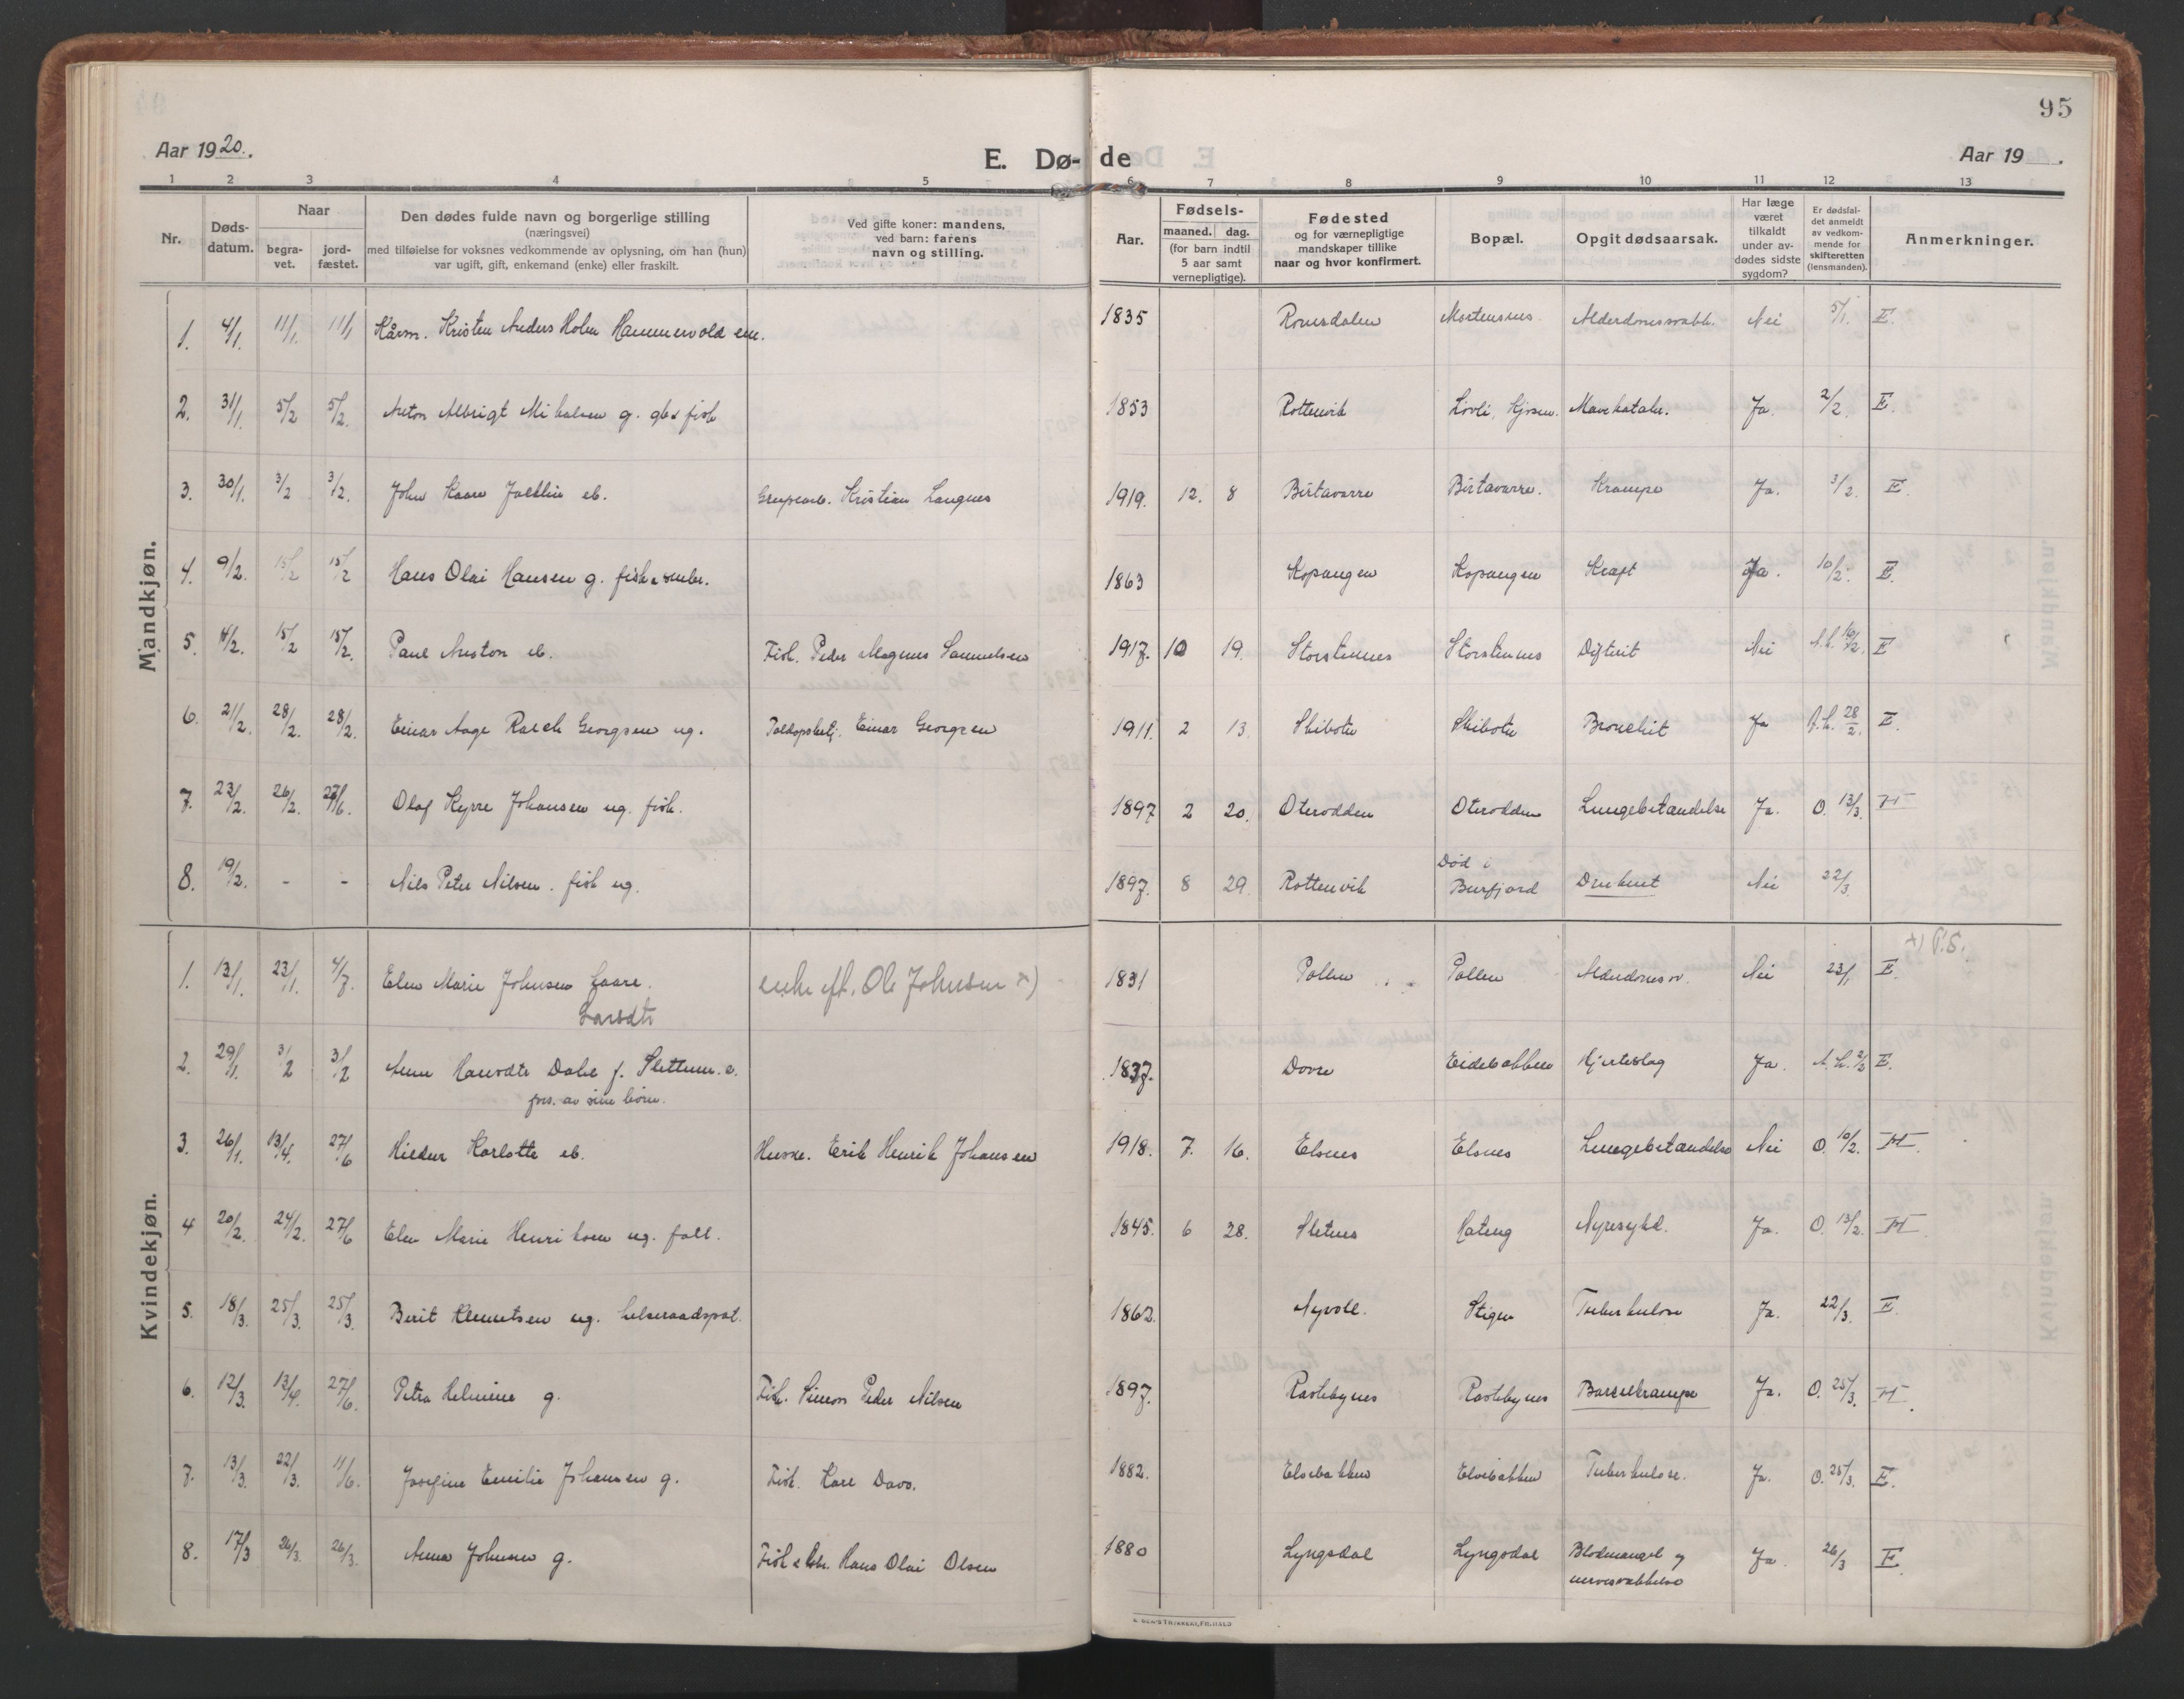 95
Aar 1920.
E. Dø-
de
Aar 19 .
1 2 3 4 5 6 7 8 9 10 11 12 13
Nr.
Døds-
datum.
Naar
begra-
vet.
jord-
fæstet.
Den dødes fulde navn og borgerlige stilling
(næringsvei)
med tilføielse for voksnes vedkommende av oplysning, om han (hun)
var ugift, gift, enkemand (enke) eller fraskilt.
Ved gifte koner: mandens,
ved barn: farens
navn og stilling.
Aar.
Fødsels-
maaned. dag.
(for barn indtil
5 aar samt
vernepligtige).
Fødested
og for værnepligtige
mandskaper tillike
naar og hvor konfirmert.
Bopæl.
Opgit dødsaarsak.
Har læge
været
tilkaldt
under av-
dødes sidste
sygdom?
Er dødsfal-
det anmeldt
av vedkom-
mende for
skifteretten
(lensmanden).
Anmerkninger.
Mandkjøn.
1. 4/1. 11/1. 11/1 Kårm. Kristen Anders Holm Hammervold em. 1835 Romsdalen Mortensnes. Alderdomssvakh. Nei 5/1. E.
2. 31/1. 5/2 5/2. Anton Albrigt Mikalsen g. gbr fisk 1853 Rottenvik Lovli, Kjosen. Mavekatahr. Ja. 2/2. E.
3. 30/1. 3/2 3/2. John Kaare eb. Kristian Langnes 1919. 12. 8 Birtavarre Birtavarre. Krampe Ja. 3/2. E.
4. 9/2. 15/2 15/2 Hans Olai Hansen g. fisk & smbr. 1863 Kopangen Kopangen Kræft Ja. 10/2. E.
5. 4/2. 15/2 15/2. Paul Anston eb. Fisk. Peder Magnus Samuelsen 1917. 10 19. Storstennes Storstennes Difterit Nei A.L. 16/2. E
6. 21/2. 28/2. 28/2. Einar Aage Rasch Georgsen ug. Toldopsbetj. Einar Georgsen 1911. 2 13. Skibotn Skibotn Bronchit Ja A.L. 28/2. E.
7. 23/2. 26/2. 27/6. Olaf Kyrre Johansen ug. fisk. 1897 2 20. Oterodden Oterodden Lungebetændelse Ja. O. 13/3. H
8. 19/2. - - Nils Peter Nilsen. fisk ug. 1897. 8 29. Rottenvik Død i
Burfjord Druknet Nei 22/3.
Kvindekjøn.
x) P.S.
1. 13/1. 23/1. 4/7. Elen Marie Johnsen Gaare. enke eft. Ole Johnsen x) 1831 Pollen Pollen Alderdomssv. Nei 23/1 E.
Larsdtr
2. 29/1. 3/2 3/2 Anne Hansdtr Dahl f. Slettum. e. 1837. Dovre Eidebakken Hjerteslag Ja. A.L. 2/2 E.
fors. av sine børn.
3. 26/1. 13/4. 27/6 Hildur Karlotte eb. Husm. Erik Henrik Johansen 1918. 7. 16. Elsnes Elsnes Lungebetændelse Nei O. 10/2. H.
4 20/2. 24/2. 27/6 Elen Marie Henriksen ug. fatt. 1845. 6 28. Sletnes Kateng Nyresykd. Ja. O. 13/2. H
5. 18/3. 25/3. 25/3. Berit Klemetsen ug. helseraadspat. 1862. Nyvoll. Stigen Tuberkulose Ja. 22/3. E.
6. 12/3. 13/4. 27/6. Petra Helmine g. Fisk. Simon Peder Nilsen 1897. Rastebynes Rastebynes Barselkrampe Ja. O. 25/3. H.
7. 13/3. 22/3. 11/6. Josefine Emilie Johansen g. Fisk. Karl Davs. 1882. Elvebakken Elvebakken Tuberkulose. Ja. O. 25/3. E.
8. 17/3 26/3. 26/3. Anna Johnsen g. Fisk & gbr. Hans Olai Olsen 1880 Lyngsdal Lyngsdal Blodmangel og Ja. 26/3 E.
nervesvækkelse